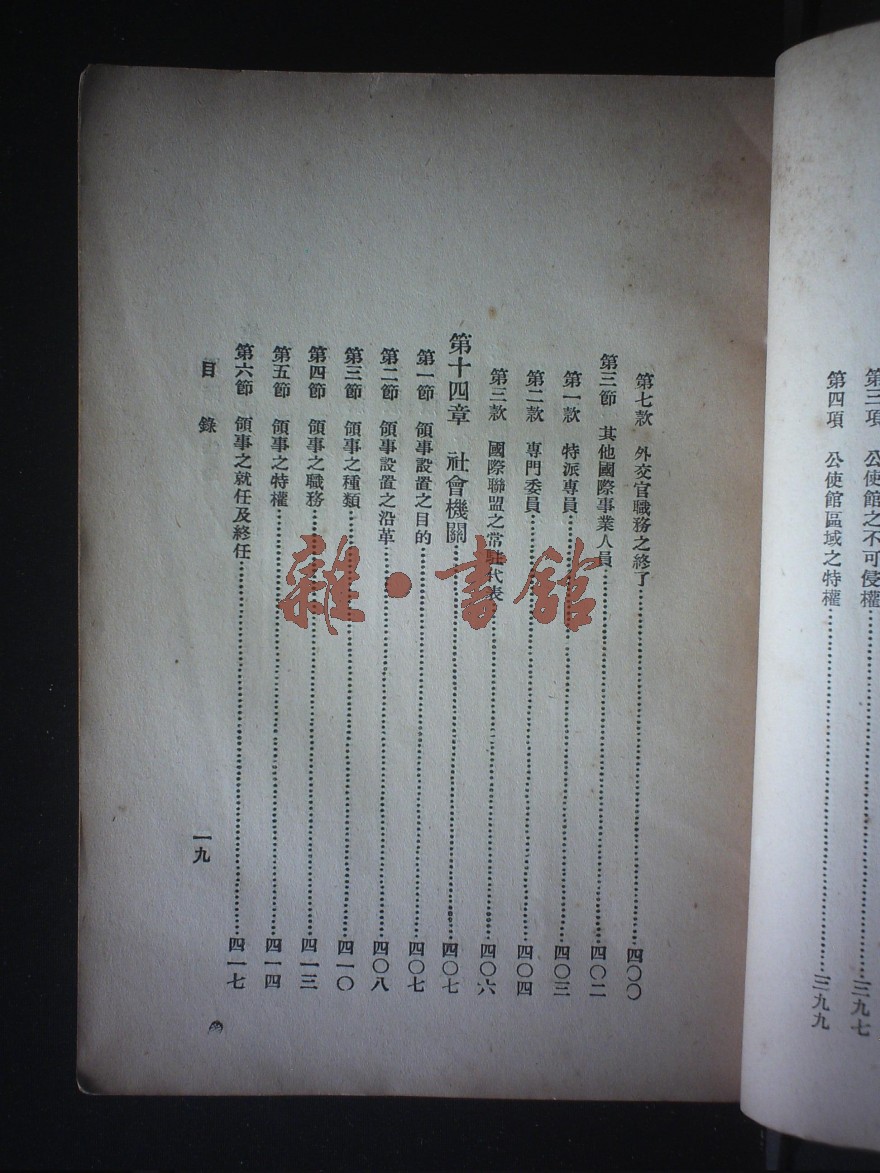 第三項　公使館之不可侵權……三九七
第四項　公使館區域之特權……三九九
第七款　外交官職務之終了……四〇〇
第三節　其他國際事業人員……四〇二
第一款　特派專員……四〇三
第二款　專門委員……四〇四
第三款　國際聯盟之常駐代表……四〇六
第十四章　社會機關……四〇七
第一節　領事設置之目的……四〇七
第二節　領事設置之沿革……四〇八
第三節　領事之種類……四一〇
第四節　領事之職務……四一三
第五節　領事之特權……四一四
第六節　領事之就任及終任……四一七
目錄
一九
雜·書館